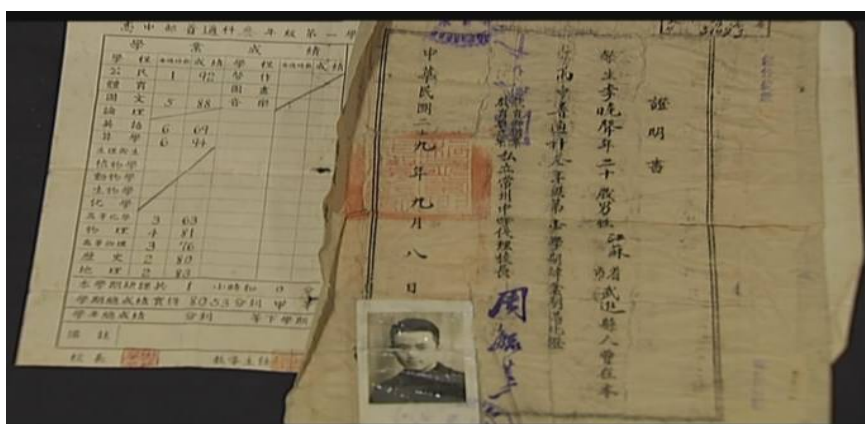 高中部普通科叁年級第一學
學業成績
學程 成績 學程 成績
公民 1 92 勞作
體育 圖畫
國文 5 88 音樂
論理
英語 6 69
算學 6 94
生理衛生
植物學
動物學
生物學
化學
高等化學 3 63
物理 4 81
高等物理 3 76
歷史 2 80
地理 2 83
本學期缺課共 1 小時扣 0 分
學期總成績實得 80.53 分列 甲 等
學年總成績 分列 等下學期
備註
校長 教導主任
證明書
學生李曉聲年二十歲男性江蘇省武進縣人曾在本
高中普通科叁年級第壹學期肄業期滿此證
私立常州中學代理校長
周毓莘
中華民國二十九年九月八日